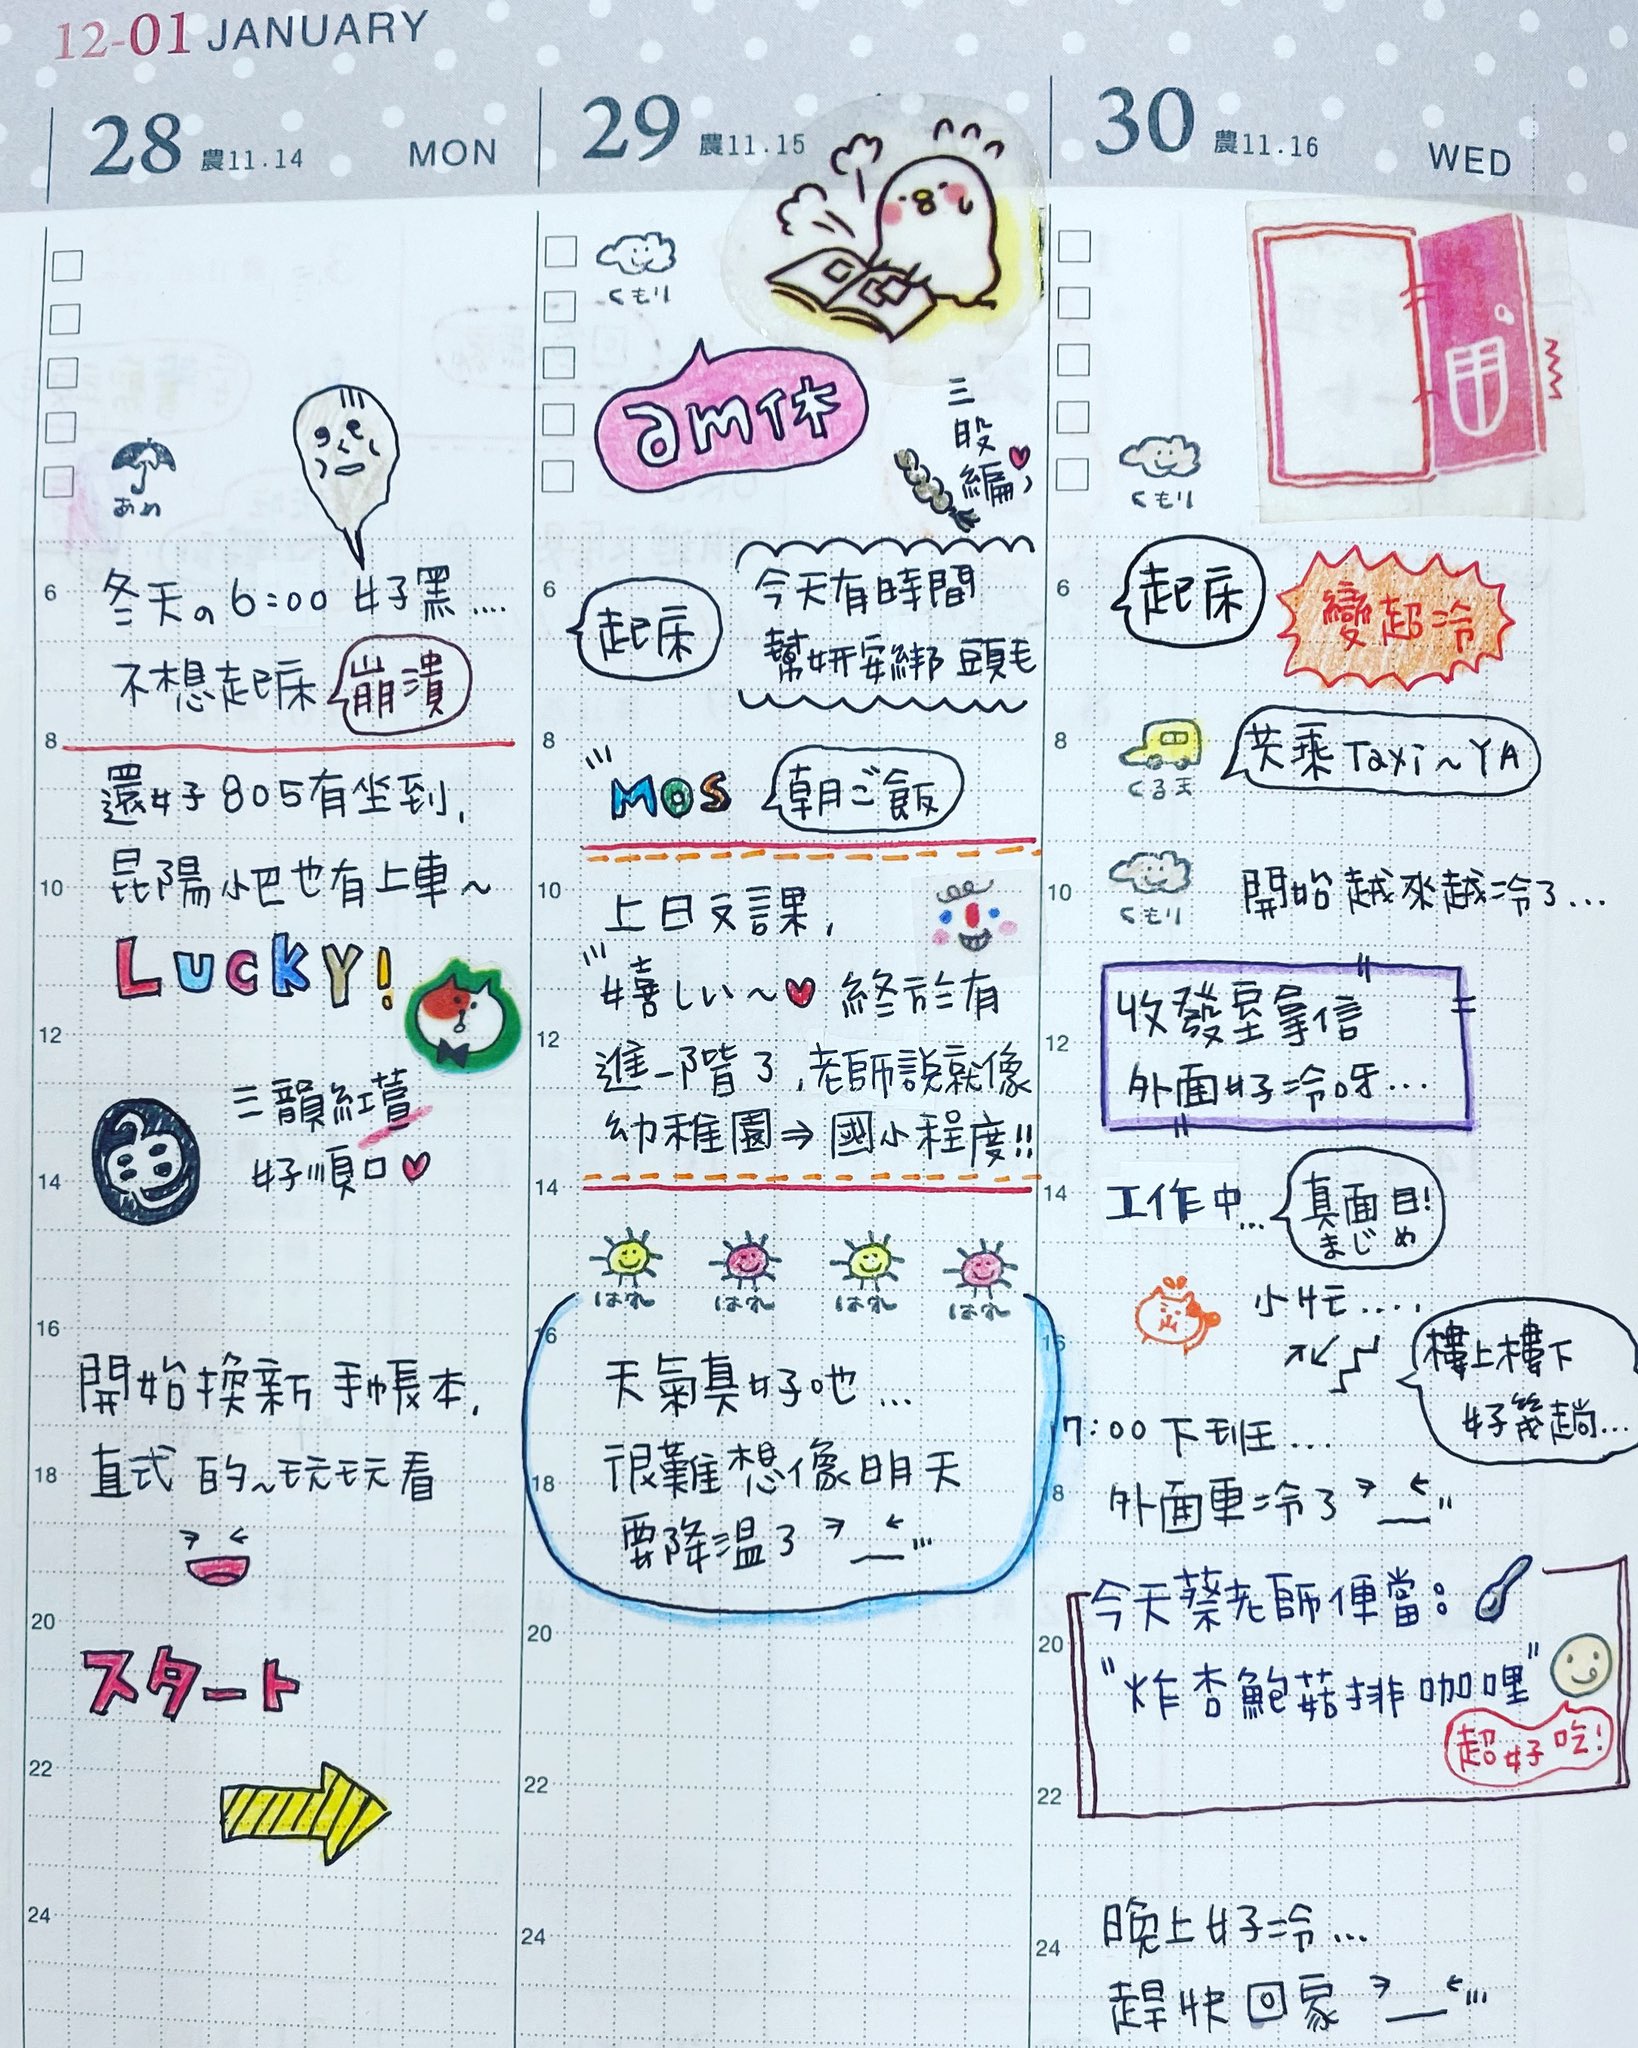 12-01 JANUARY
28 農11.14 MON
あめ
冬天の6:00 好黑....
不想起床 崩潰
還好805有坐到,
昆陽小巴也有上車~
LUCKY!
三韻紅萱
好順口
開始換新手帳本,
直式的~玩玩看
スタート
6
8
10
12
14
16
18
20
22
24
29 農11.15
くもり
am休
三
股
編,
起床
今天有時間
幫妍安綁頭毛
MOS 朝ご飯
上日文課,
嬉しい~ 終於有
進一階了,老師說就像
幼稚園⇒國小程度!!
はれ はれ はれ はれ
天氣真好吔...
很難想像明天
要降溫了
6
8
10
12
14
16
18
20
22
24
30 農11.16 WED
くもり
起床
變超冷
共乘Taxi~YA
くるま
くもり
開始越來越冷了...
收發室拿信
外面好冷呀...
工作中...
真面目!
まじめ
小忙....
樓上樓下
好幾趟...
7:00下班...
外面更冷了
今天蔡老師便當:
"炸杏鮑菇排咖哩"
超好吃!
晚上好冷...
趕快回家
6
8
10
12
14
16
18
20
22
24